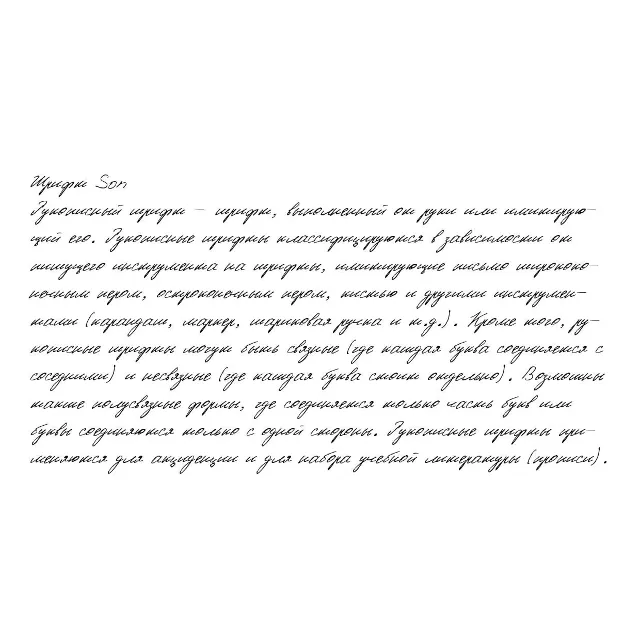 Шрифт Son
Рукописный шрифт — шрифт, выполненный от руки или имитирую-
щий его. Рукописные шрифты классифицируются в зависимости от
пишущего инструмента на шрифты, имитирующие письмо ширококо-
нечным пером, остроконечным пером, кистью и другими инструмен-
тами (карандаш, маркер, шариковая ручка и т.д.). Кроме того, ру-
кописные шрифты могут быть связные (где каждая буква соединяется с
соседними) и несвязные (где каждая буква стоит отдельно). Возможны
также полусвязные формы, где соединяется только часть букв или
буквы соединяются только с одной стороны. Рукописные шрифты при-
меняются для акциденции и для набора учебной литературы (прописи).